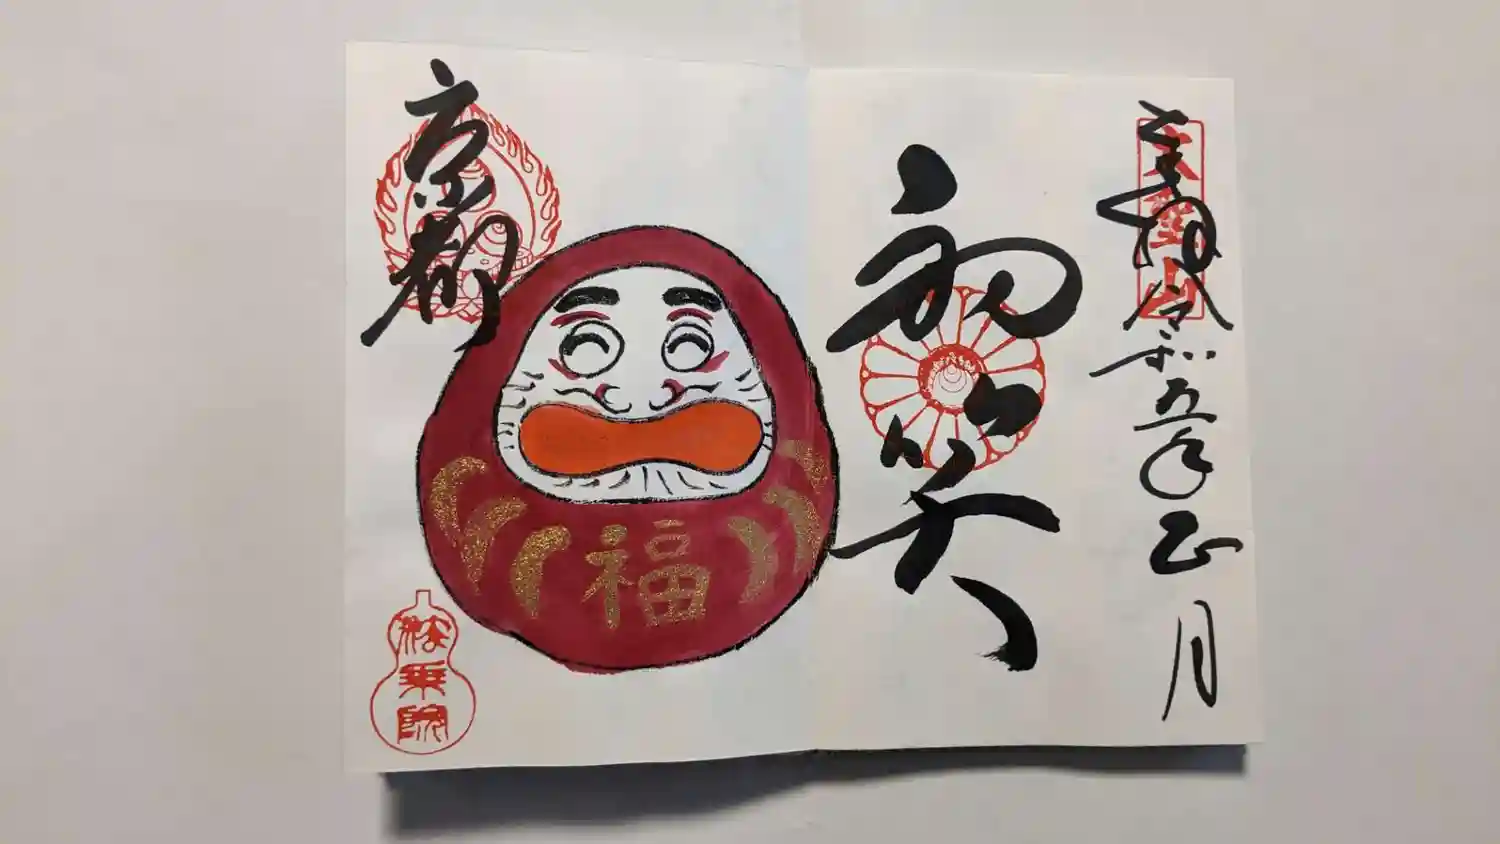 奉拝 令和五年正月
初笑
福
京都